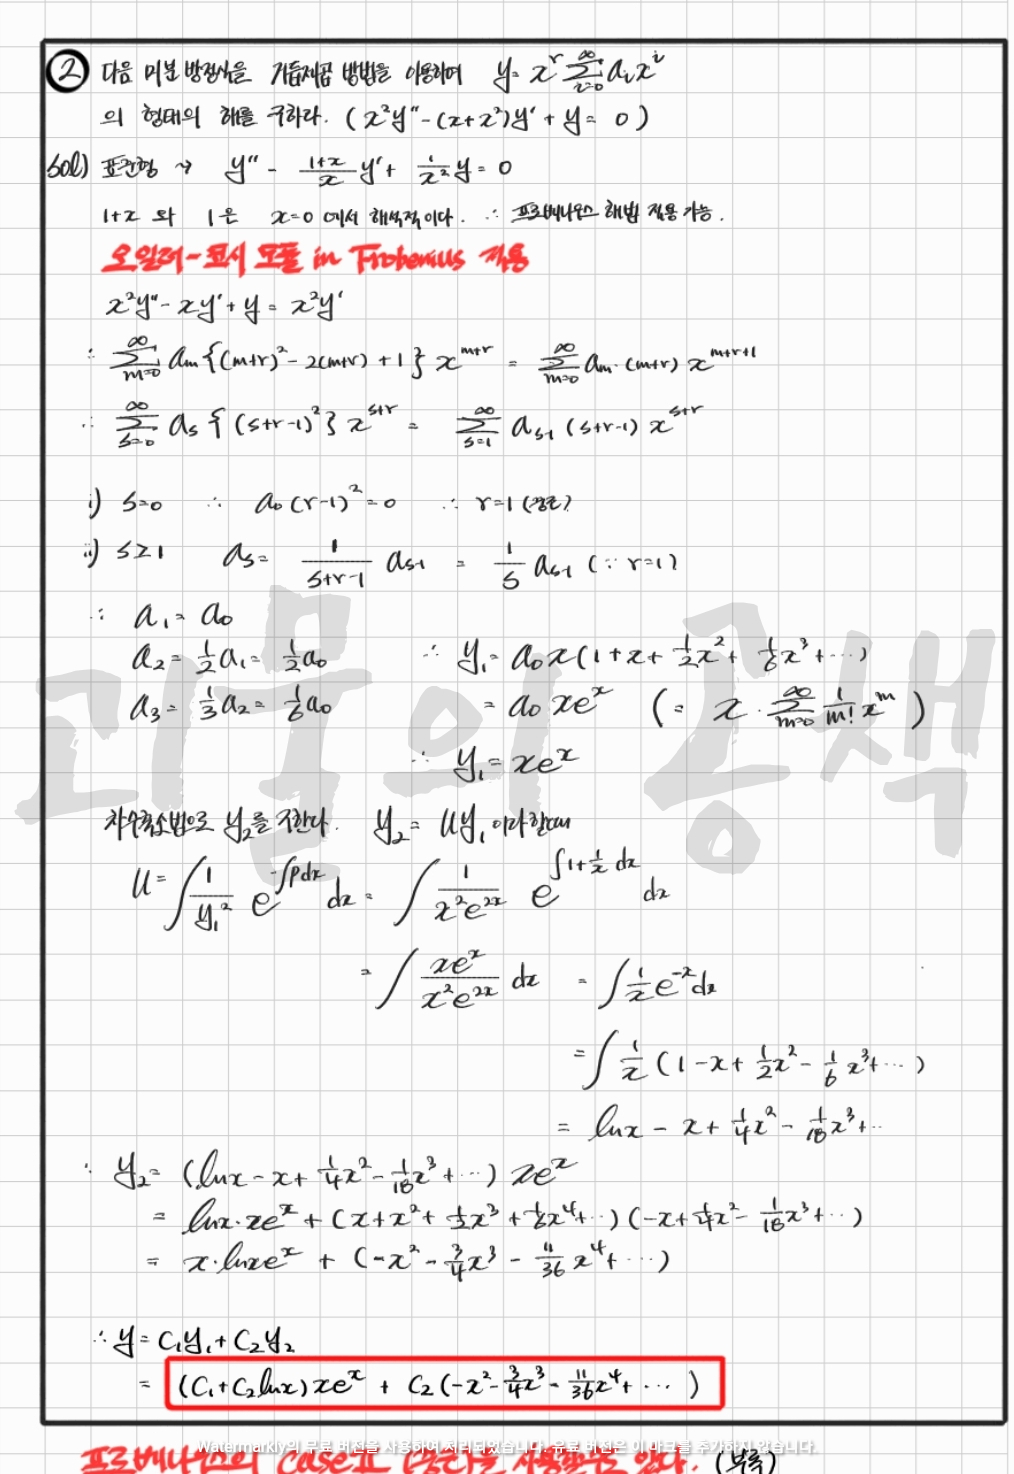 ② 다음 미분 방정식을 거듭제곱 방법을 이용하여 y = x^r Σ_{i=0}^{∞} a_i x^i
의 형태의 해를 구하라. (x²y'' - (x+x²)y' + y = 0)
sol) 표준형 → y'' - (1+x)/x y' + 1/x² y = 0
1+x 와 1은 x=0 에서 해석적이다. ∴ 프로베니우스 해법 적용 가능.
오일러-코시 모듈 in Frobenius 적용
x²y'' - xy' + y = x²y'
∴ Σ_{m=0}^{∞} a_m {(m+r)² - 2(m+r) + 1} x^{m+r} = Σ_{m=0}^{∞} a_m·(m+r) x^{m+r+1}
∴ Σ_{s=0}^{∞} a_s {(s+r-1)²} x^{s+r} = Σ_{s=1}^{∞} a_{s-1} (s+r-1) x^{s+r}
i) s=0 ∴ a₀(r-1)² = 0 ∴ r=1 (중근)
ii) s≥1 a_s = 1/(s+r-1) a_{s-1} = 1/s a_{s-1} (∵ r=1)
∴ a₁ = a₀
a₂ = 1/2 a₁ = 1/2 a₀ ∴ y₁ = a₀x(1+x+1/2 x² + 1/6 x³ + ···)
a₃ = 1/3 a₂ = 1/6 a₀ = a₀xe^x (= x·Σ_{m=0}^{∞} 1/m! x^m)
∴ y₁ = xe^x
괴물의 공책
차수축소법으로 y₂를 구한다. y₂ = uy₁ 이라 할때
u = ∫ 1/y₁² e^{-∫pdx} dx = ∫ 1/(x²e^{2x}) e^{∫1+1/x dx} dx
= ∫ xe^x/(x²e^{2x}) dx = ∫ 1/x e^{-x} dx
= ∫ 1/x (1 - x + 1/2 x² - 1/6 x³ + ···)
= lnx - x + 1/4 x² - 1/18 x³ + ··
∴ y₂ = (lnx - x + 1/4 x² - 1/18 x³ + ···) xe^x
= lnx·xe^x + (x + x² + 1/2 x³ + 1/6 x⁴ + ··)(-x + 1/4 x² - 1/18 x³ + ··)
= x·lnxe^x + (-x² - 3/4 x³ - 11/36 x⁴ + ···)
∴ y = C₁y₁ + C₂y₂
= (C₁ + C₂lnx)xe^x + C₂(-x² - 3/4 x³ - 11/36 x⁴ + ···)
Watermarkly의 무료 버전을 사용하여 처리되었습니다. 유료 버전은 이 마크를 추가하지 않습니다.
프로베니우스의 case II (중근)을 사용할수도 있다. (부록)